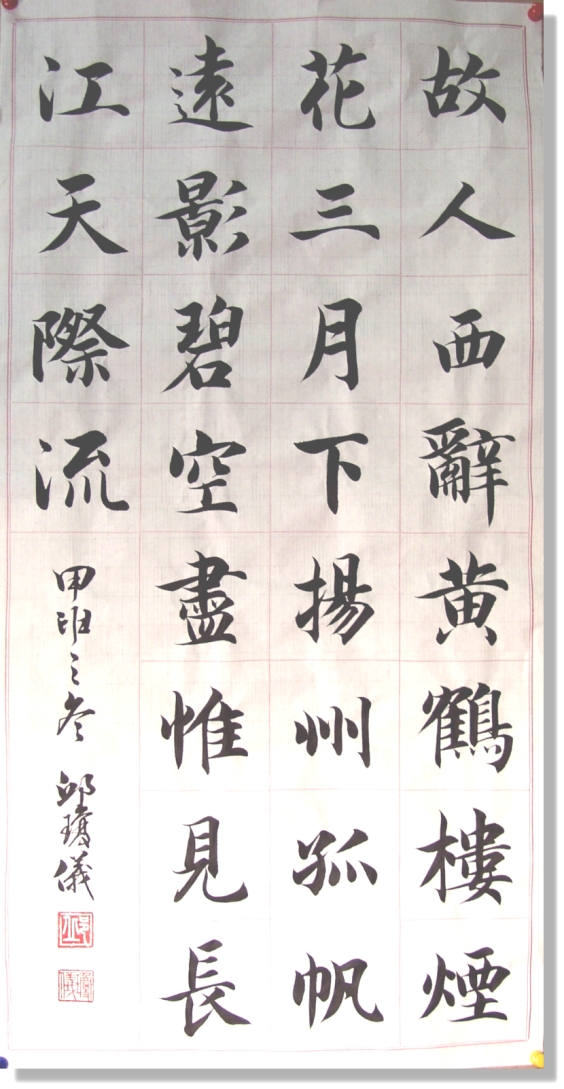 故人西辭黄鶴樓煙
花三月下揚州孤帆
遠影碧空盡惟見長
江天際流
甲 之冬 邱瓊儀
瓊儀